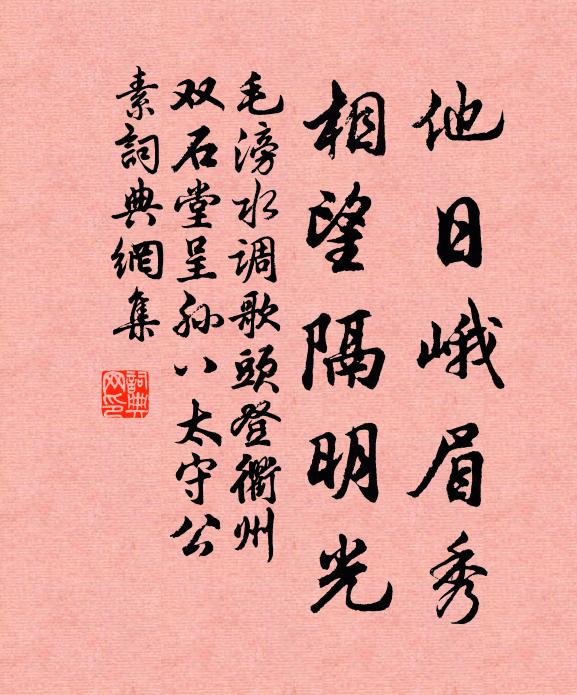 他日峨眉秀
相望隔明光
毛滂水调歌頭登衢州
双石堂呈孙八太守公
素詞典網集
詞典网印